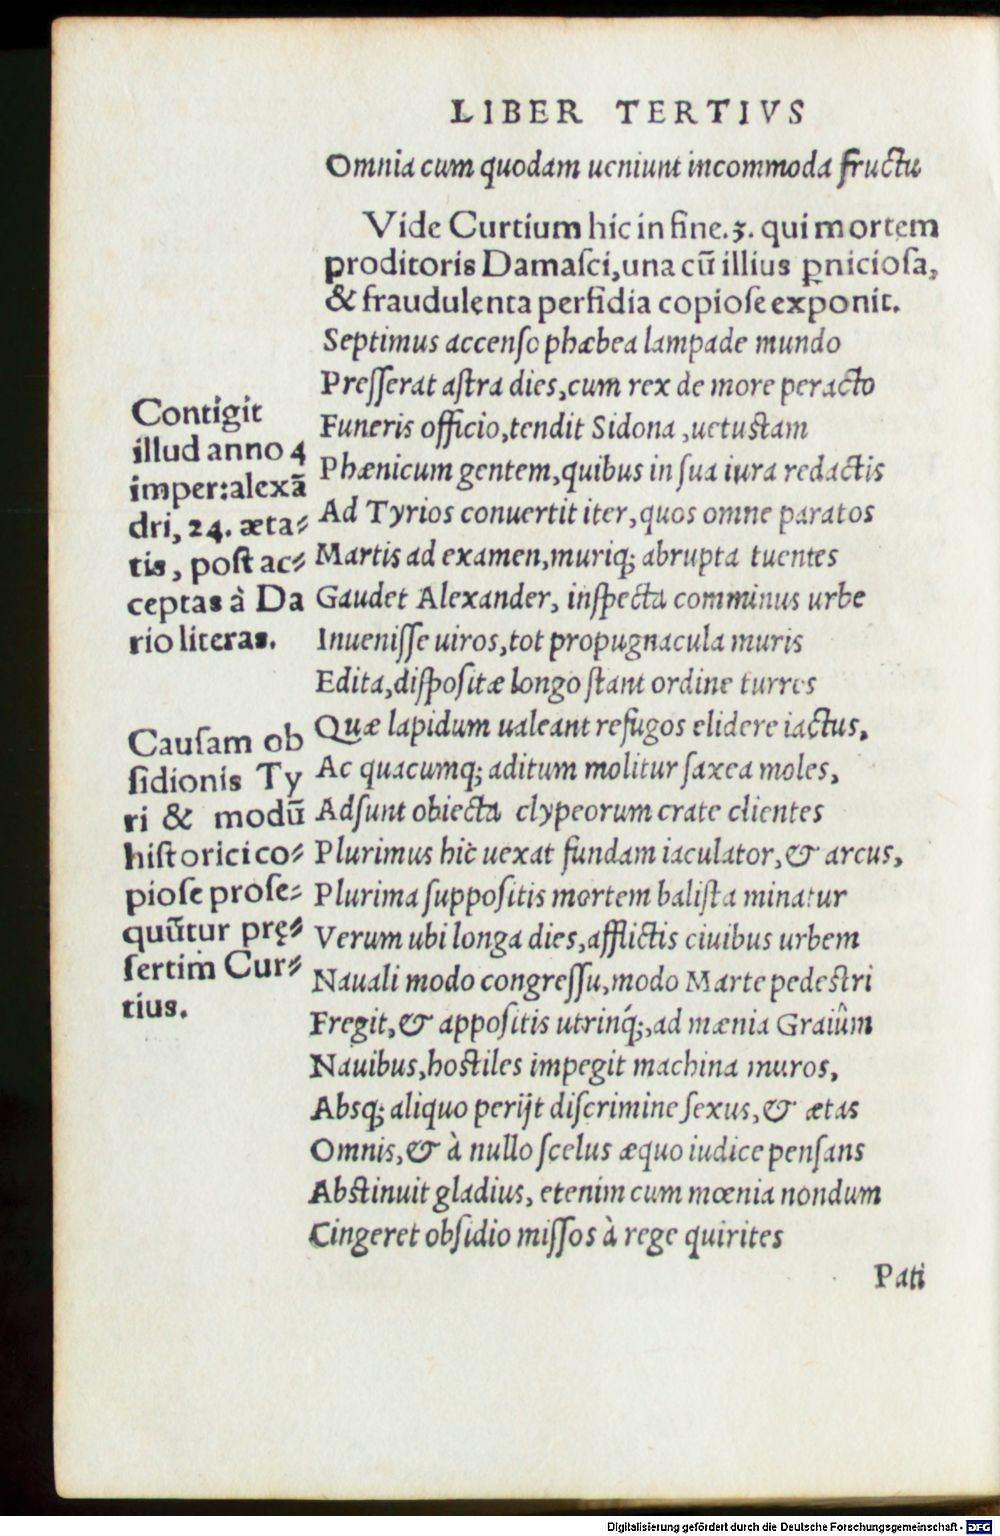 LIBER TERTIVS
Omnia cum quodam ueniunt incommoda fructu
Vide Curtium hic in fine.3. qui mortem
proditoris Damaſci,una cū illius ꝑnicioſa,
& fraudulenta perfidia copioſe exponit.
Septimus accenſo phæbea lampade mundo
Preſſerat aſtra dies,cum rex de more peracto
Funeris officio,tendit Sidona ,uetustam
Phænicum gentem,quibus in ſua iura redactis
Ad Tyrios conuertit iter,quos omne paratos
Martis ad examen,muriq; abrupta tuentes
Gaudet Alexander, inſpecta comminus urbe
Inueniſſe uiros,tot propugnacula muris
Edita,diſpoſitæ longo ſtant ordine turres
Quæ lapidum ualeant refugos elidere iactus,
Ac quacumq; aditum molitur ſaxea moles,
Adſunt obiecta clypeorum crate clientes
Plurimus hic uexat fundam iaculator,& arcus,
Plurima ſuppoſitis mortem baliſta minatur
Verum ubi longa dies,afflictis ciuibus urbem
Nauali modo congreſſu,modo Marte pedestri
Fregit,& appoſitis utrinq́;,ad mænia Graiûm
Nauibus,hostiles impegit machina muros,
Absq; aliquo perijt diſcrimine ſexus,& ætas
Omnis,& à nullo ſcelus æquo iudice penſans
Abstinuit gladius, etenim cum mœnia nondum
Cingeret obſidio miſſos à rege quirites
Pati
Contigit
illud anno 4
imper:alexā
dri, 24. æta⸗
tis, poſt ac⸗
ceptas à Da
rio literas.
Cauſam ob
ſidionis Ty
ri & modū
hiſtorici co⸗
pioſe proſe⸗
quūtur prę⸗
ſertim Cur⸗
tius.
Digitalisierung gefördert durch die Deutsche Forschungsgemeinschaft - DFG